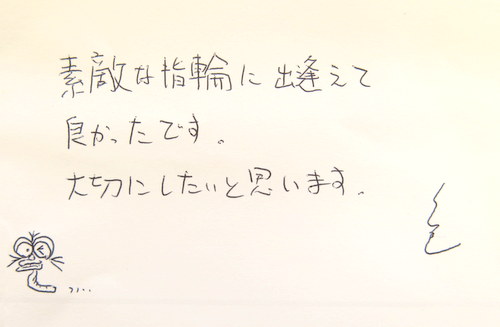 素敵な指輪に出逢えて
良かったです。
大切にしたいと思います。